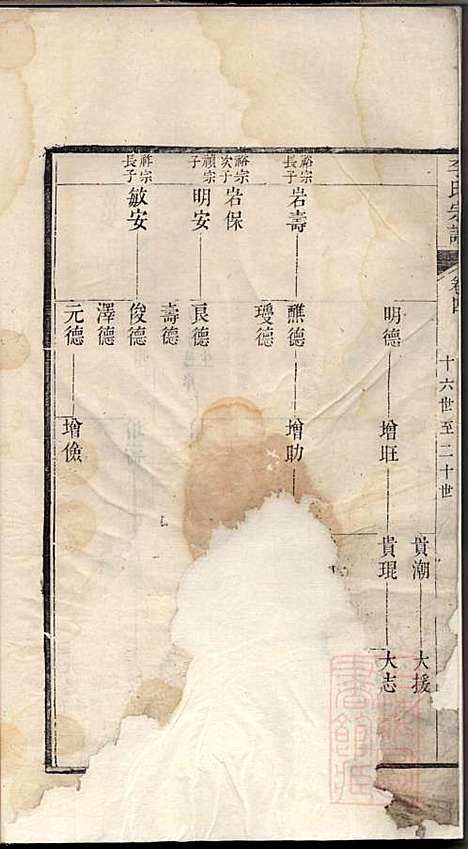 李氏宗譜 卷四 十六世至二十世
貴潮 大援
明德 增旺 貴琨 大志
裕宗長子 岩壽 醮德 增助
璦德
裕宗次子 岩保
禎宗子 明安 良德
壽德
祥宗長子 敏安 俊德
澤德
元德 增儉